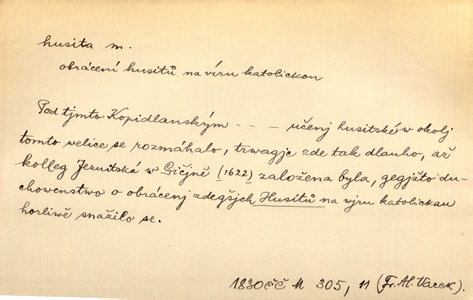 husita m.
obrácení husitů na víru katolickou
Pod tjmto Kopidlanským - - - učenj husitské w okolj
tomto velice se rozmáhalo, trwagjc zde tak dlauho, až
kolleg Jezuitská w Gičjně (1622) založena byla, gegjžto du-
chovenstwo o obrácenj zdegšjch Husitů na wjru katolickau
horliwě snažilo se.
1830 ČČ M 305, 11 (Fr. Al. Vacek).